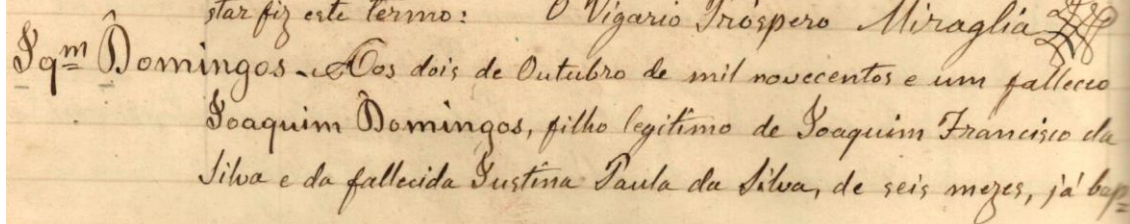 star fiz este termo: O Vigario Próspero Miraglia
Jqm Domingos. Aos dois de Outubro de mil novecentos e um falleceo
Joaquim Domingos, filho legitimo de Joaquim Francisco da
Silva e da fallecida Justina Paula da Silva, de seis mezes, já bap=